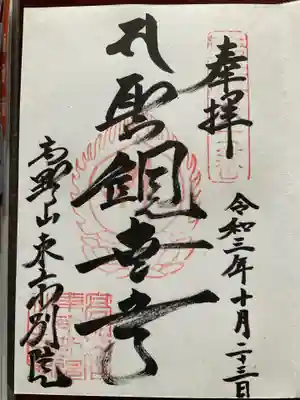 奉拝
令和三年十月二十三日
聖観世音
高野山東京別院